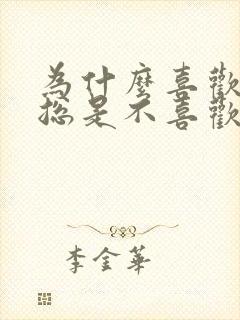 為什麼喜歡
總是不喜歡
李金華